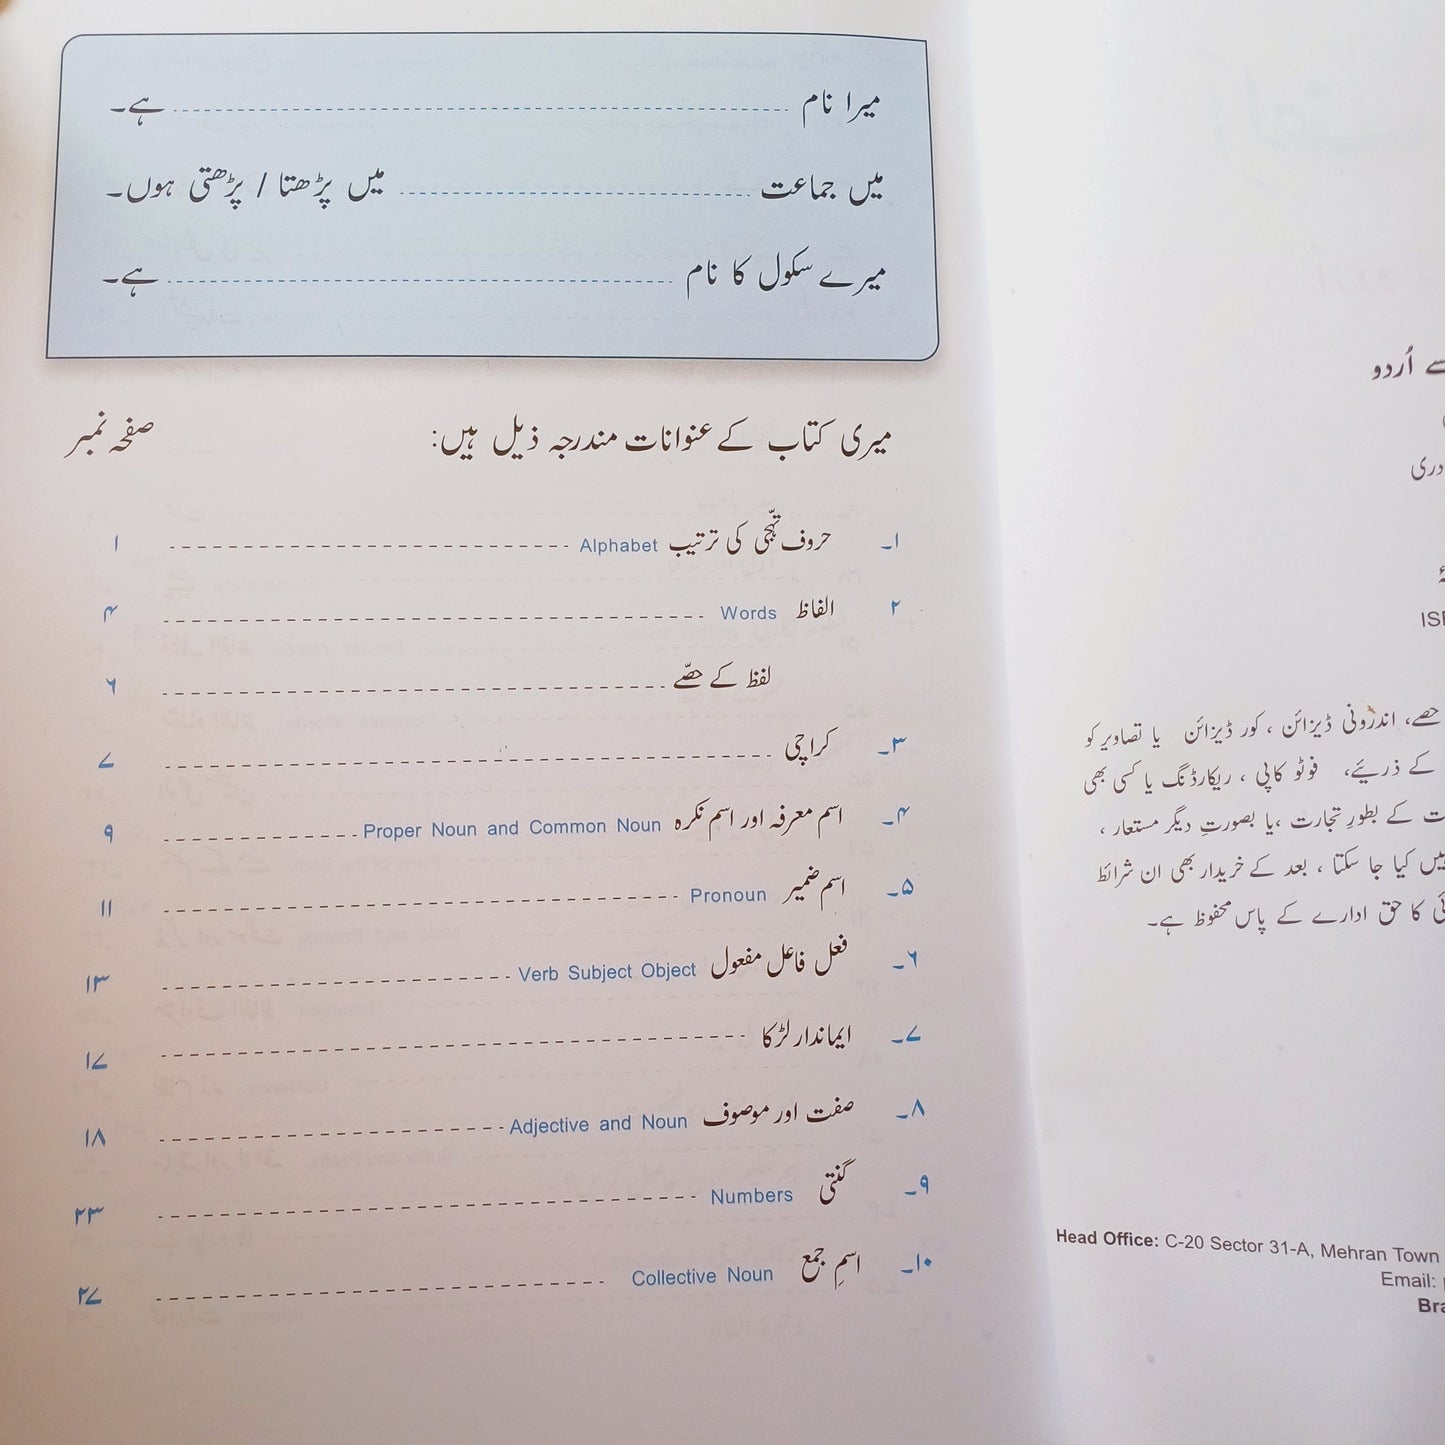 میرا نام ------------ ہے۔
میں جماعت ------------ میں پڑھتا / پڑھتی ہوں۔
میرے سکول کا نام ------------ ہے۔
میری کتاب کے عنوانات مندرجہ ذیل ہیں: صفحہ نمبر
۱۔ حروف تہجّی کی ترتیب Alphabet ------------ ۱
۲ الفاظ Words ------------ ۴
لفظ کے حصّے ------------ ۶
۳۔ کراچی ------------ ۷
۴۔ اسم معرفہ اور اسم نکرہ Proper Noun and Common Noun ------------ ۹
۵۔ اسم ضمیر Pronoun ------------ ۱۱
۶۔ فعل فاعل مفعول Verb Subject Object ------------ ۱۳
۷۔ ایماندار لڑکا ------------ ۱۷
۸۔ صفت اور موصوف Adjective and Noun ------------ ۱۸
۹۔ گنتی Numbers ------------ ۲۳
۱۰۔ اسمِ جمع Collective Noun ------------ ۲۷
سے اُردو
حصے، اندرونی ڈیزائن ، کور ڈیزائن یا تصاویر کو
کے ذریئے، فوٹو کاپی ، ریکارڈنگ یا کسی بھی
کے بطورِ تجارت ،یا بصورتِ دیگر مستعار ،
کیا جا سکتا ، بعد کے خریدار بھی ان شرائط
کا حق ادارے کے پاس محفوظ ہے۔
Head Office: C-20 Sector 31-A, Mehran Town
Email: